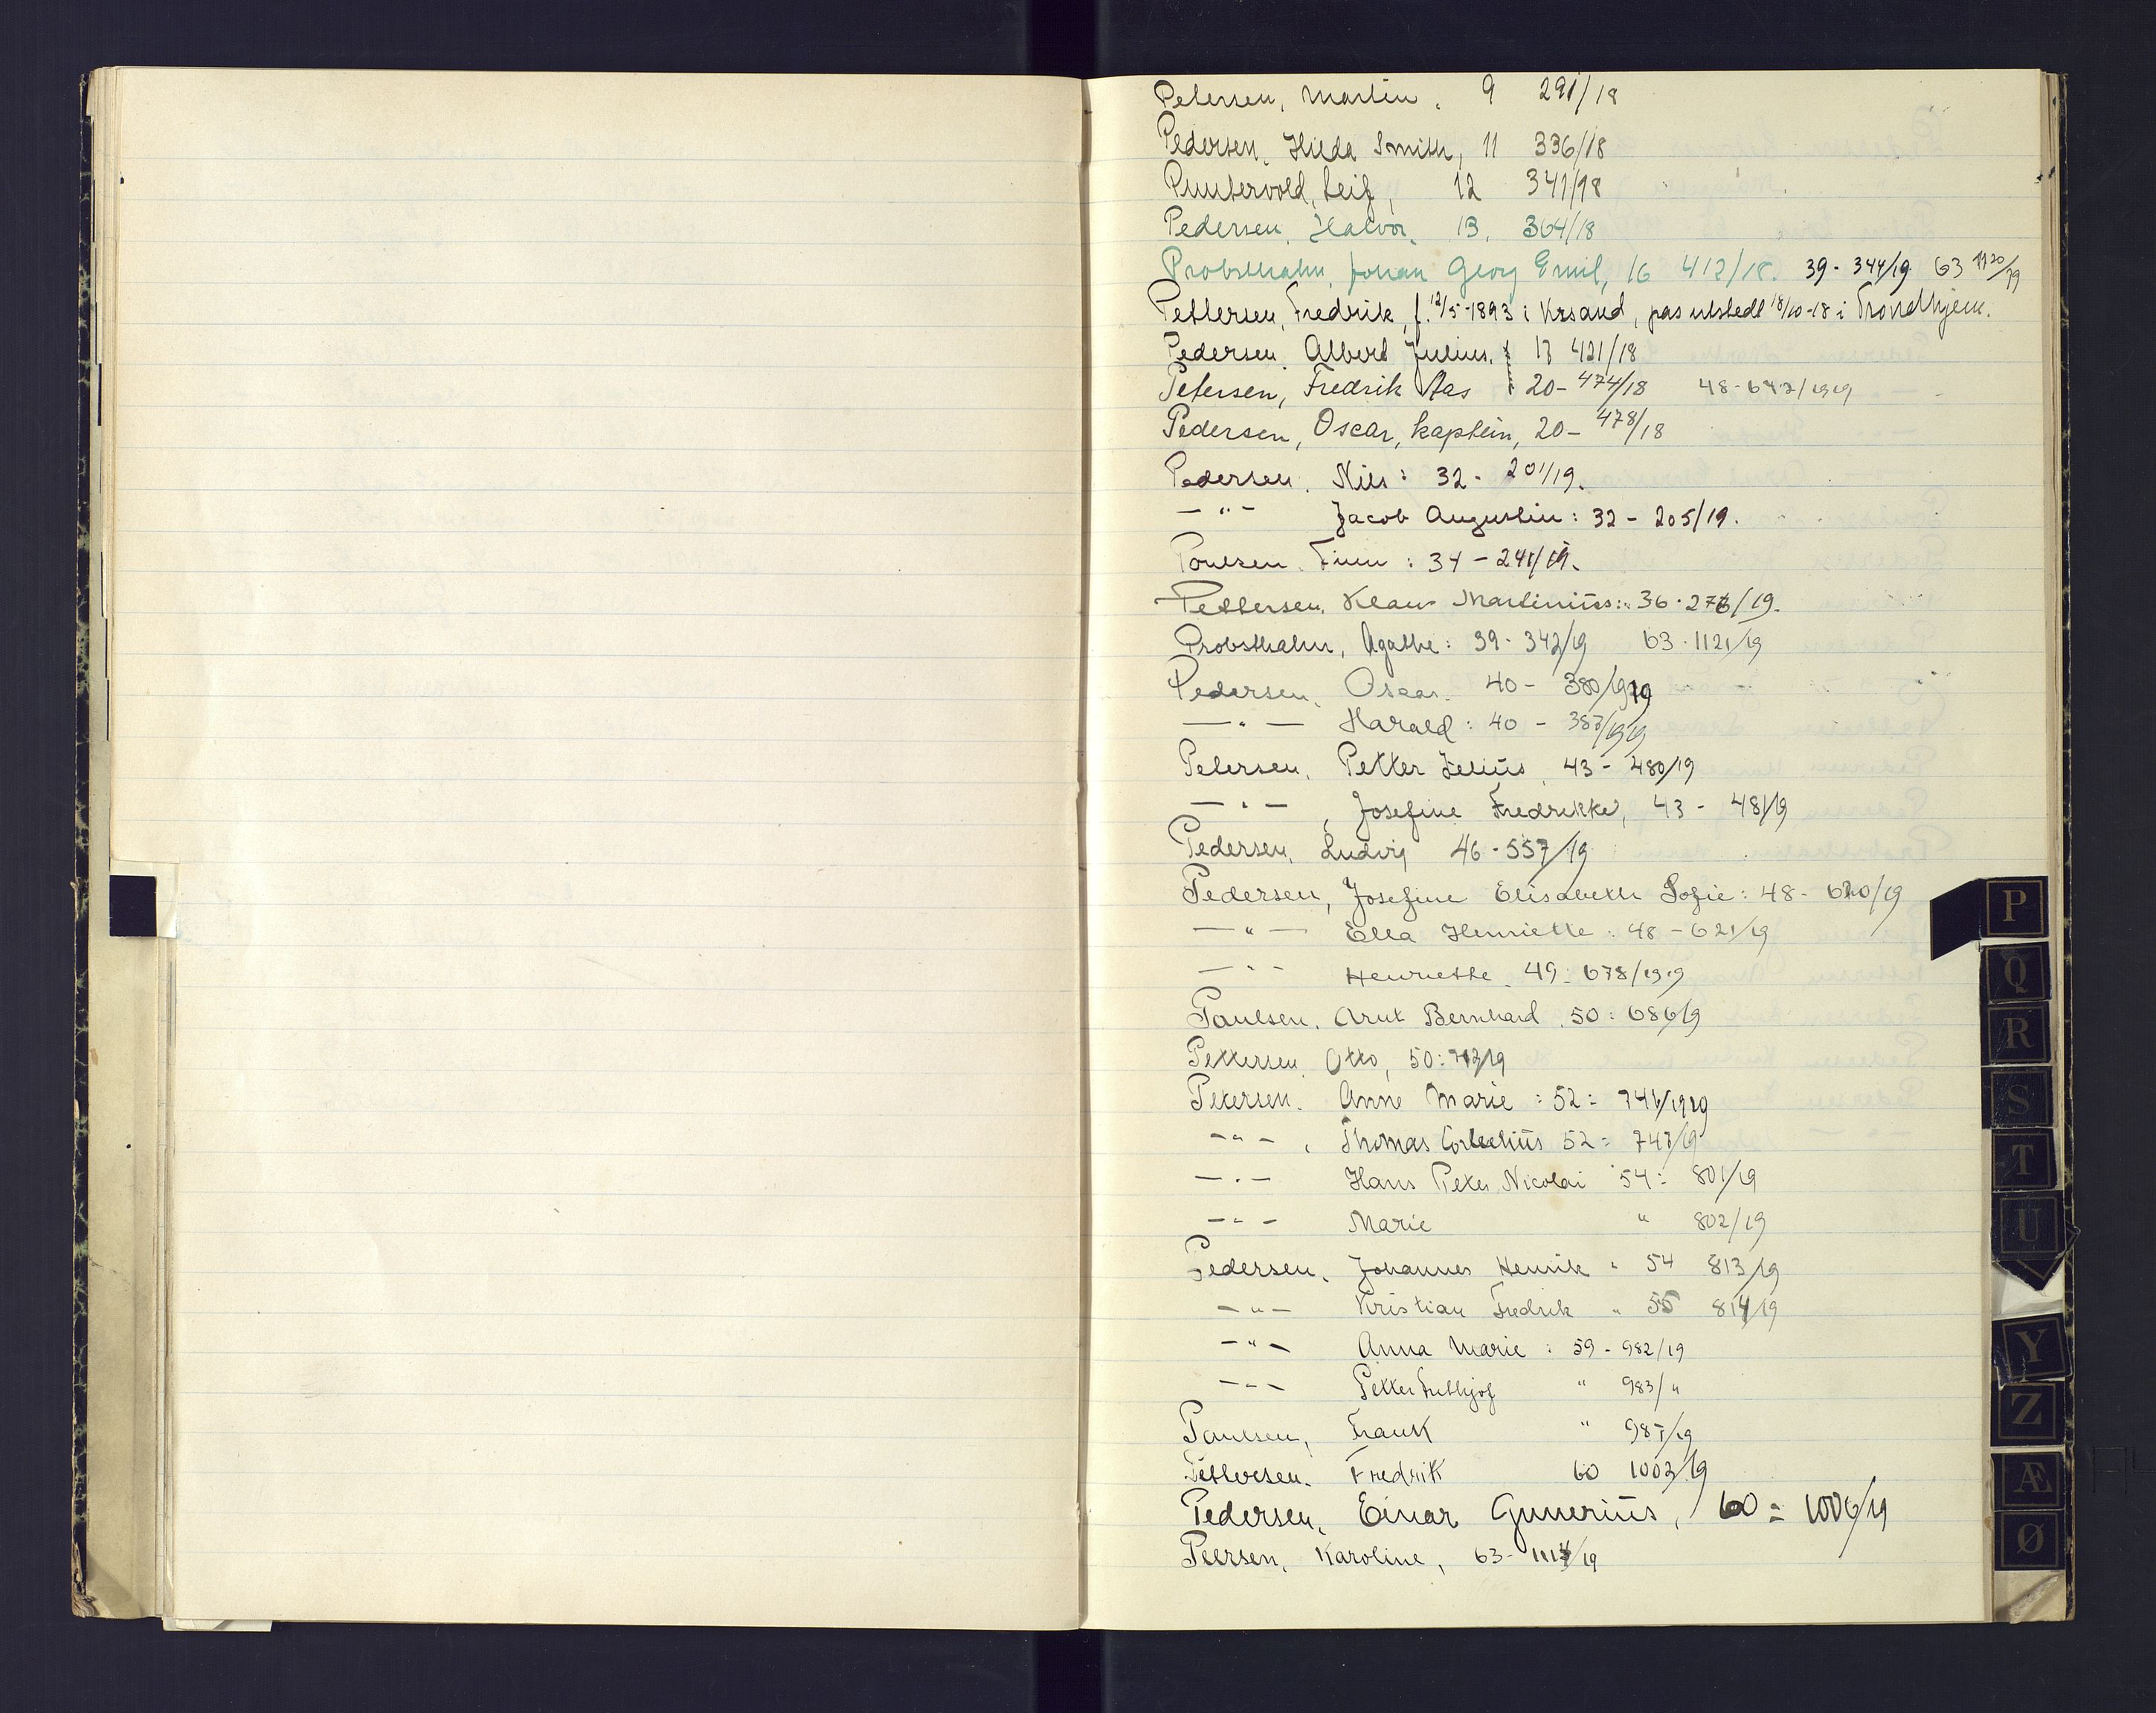 Petersen, Martin, 9 291/18
Pedersen, Hilda Smith, 11 336/18
Puntervold, Leif, 12 341/18
Pedersen, Halvor, 13, 364/18
Probsthahn, Johan Georg Emil, 16 412/18. 39- 344/19 63 1120/19
Pettersen, Fredrik, f. 12/5-1893 i Krsand, pas utstedt 18/10-18 i Trondhjem.
Pedersen, Albert Julius, 17 421/18
Petersen, Fredrik Aas : 20- 474/18 48-647/1919
Pedersen, Oscar, kaptein, 20- 478/18
Pedersen, Nils: 32- 201/19.
— " — Jacob Augustin: 32 - 205/19.
Poulsen, Finn : 34 - 241/19.
Pettersen, Klaus Martinius: 36-276/19.
Probsthahn, Agathe: 39- 342/19 63-1121/19
Pedersen, Oscar. 40- 380/1919
— " — Harald: 40 - 387/1919
Petersen, Petter Julius, 43- 480/19
— " — , Josefine Fredrikke, 43 - 481/19
Pedersen, Ludvig 46-557/19
Pedersen, Josefine Elisabeth Sofie: 48- 620/19
— " — Ella Henriette : 48 - 621/19
— " — Henriette 49: 678/1919
Paulsen, Arnt Bernhard, 50: 686/19
Pettersen, Otto, 50: 713/19
Petersen, Anne Marie : 52: 746/1919
— " — , Thomas Cornelius 52: 747/19
— " — Hans Peter Nicolai 54: 801/19
— " — Marie " 802/19
Pedersen, Johannes Henrik " 54 813/19
— " — Kristian Fredrik " 55 814/19
— " — Anna Marie : 59- 982/19
— " — Petter Frithjof " 983/"
Paulsen, Frank " 987/19
Pettersen, Fredrik 60 1003/19
Pedersen, Einar Gunerius, 60 = 1006/19
Peersen, Karoline, 63- /19
P
Q
R
S
T
U
Y
Z
Æ
Ø